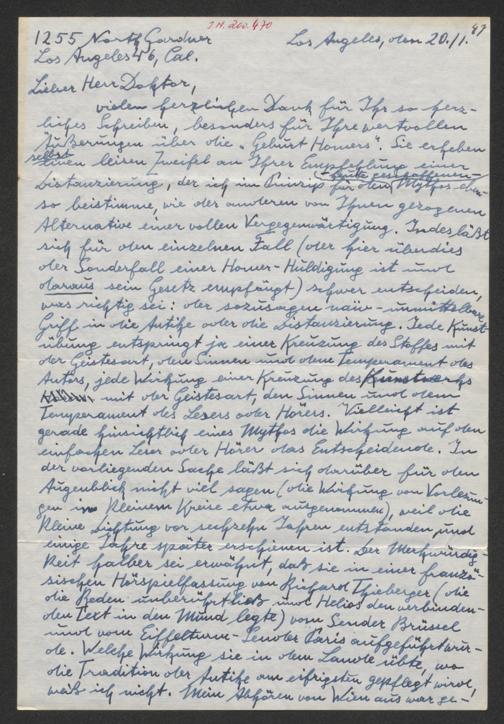 I.N. 200.470
47
1255 North Gardner
Los Angeles 46, Cal.
Los Angeles, den 20./1.
Lieber Herr Doktor,
vielen herzlichen Dank für Ihr so herz-
liches Schreiben, besonders für Ihre wertvollen
Äußerungen über die „Geburt Homers“. Sie erheben
selbst
einen leisen Zweifel an Ihrer Empfehlung einer
(heute geschaffenen)
Distanzierung, der ich im Prinzip für den Mythos eben-
so beistimme, wie der anderen von Ihnen gezogenen
Alternative einer vollen Vergegenwärtigung. Indes läßt
sich für den einzelnen Fall (der hier überdies
der Sonderfall einer Homer-Huldigung ist und
daraus sein Gesetz empfängt) schwer entscheiden,
was richtig sei: der sozusagen naiv-unmittelbare
Griff in die Antike oder die Distanzierung. Jede Kunst-
übung entspringt ja einer Kreuzung des Stoffes mit
der Geistesart, den Sinnen und dem Temperament des
Autors, jede Wirkung einer Kreuzung des Kunstwerks
mit der Geistesart, den Sinnen und dem
Temperament des Lesers oder Hörers. Vielleicht ist
gerade hinsichtlich eines Mythos die Wirkung auf den
einfachen Leser oder Hörer das Entscheidende. In
der vorliegenden Sache läßt sich darüber für den
Augenblick nicht viel sagen (die Wirkung von Vorlesun-
gen in kleinem Kreise etwa ausgenommen), weil die
kleine Dichtung vor sechzehn Jahren entstanden und
einige Jahre später erschienen ist. Der Merkwürdig-
keit halber sei erwähnt, daß sie in einer franzö-
sischen Hörspielfassung von Richard Thieberger (die
die Reden unberührt ließ und Helios den verbinden-
den Text in den Mund legte) vom Sender Brüssel
und vom Eiffelturm-Sender Paris aufgeführt wur-
de. Welche Wirkung sie in dem Lande übte, wo
die Tradition der Antike am eifrigsten gepflegt wird,
weiß ich nicht. Mein Abhören von Wien aus war ge-